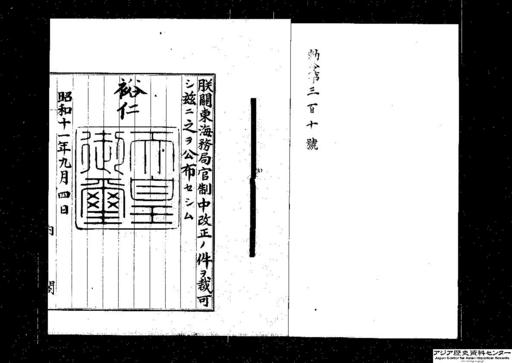 勅令第三百十號
朕關東海務局官制中改正ノ件ヲ裁可
シ茲ニ之ヲ公布セシム
裕仁
天皇御璽
昭和十一年九月四日
内閣
アジア歴史資料センター
Japan Center for Asian Historical Records